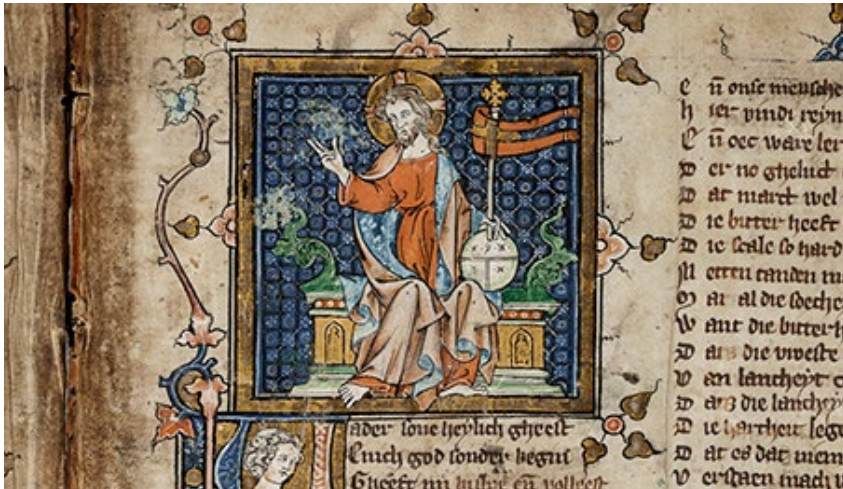 Vader sone heylich gheest
Enich god sonder begin
Gheeft mi
E n̄ onse mensche
h ier vindi reyn
E n̄ oec ware ler
D er no ghelijc
D at marct wel
D ie bitter heeft
D ie scale so hard
M etten tanden
M ar al die soeche
W ant die bitterh
D ats die
V an lancheyt
D ats die lanchey
D ie hartheit lege
D at es dat niem
V erstaen mach